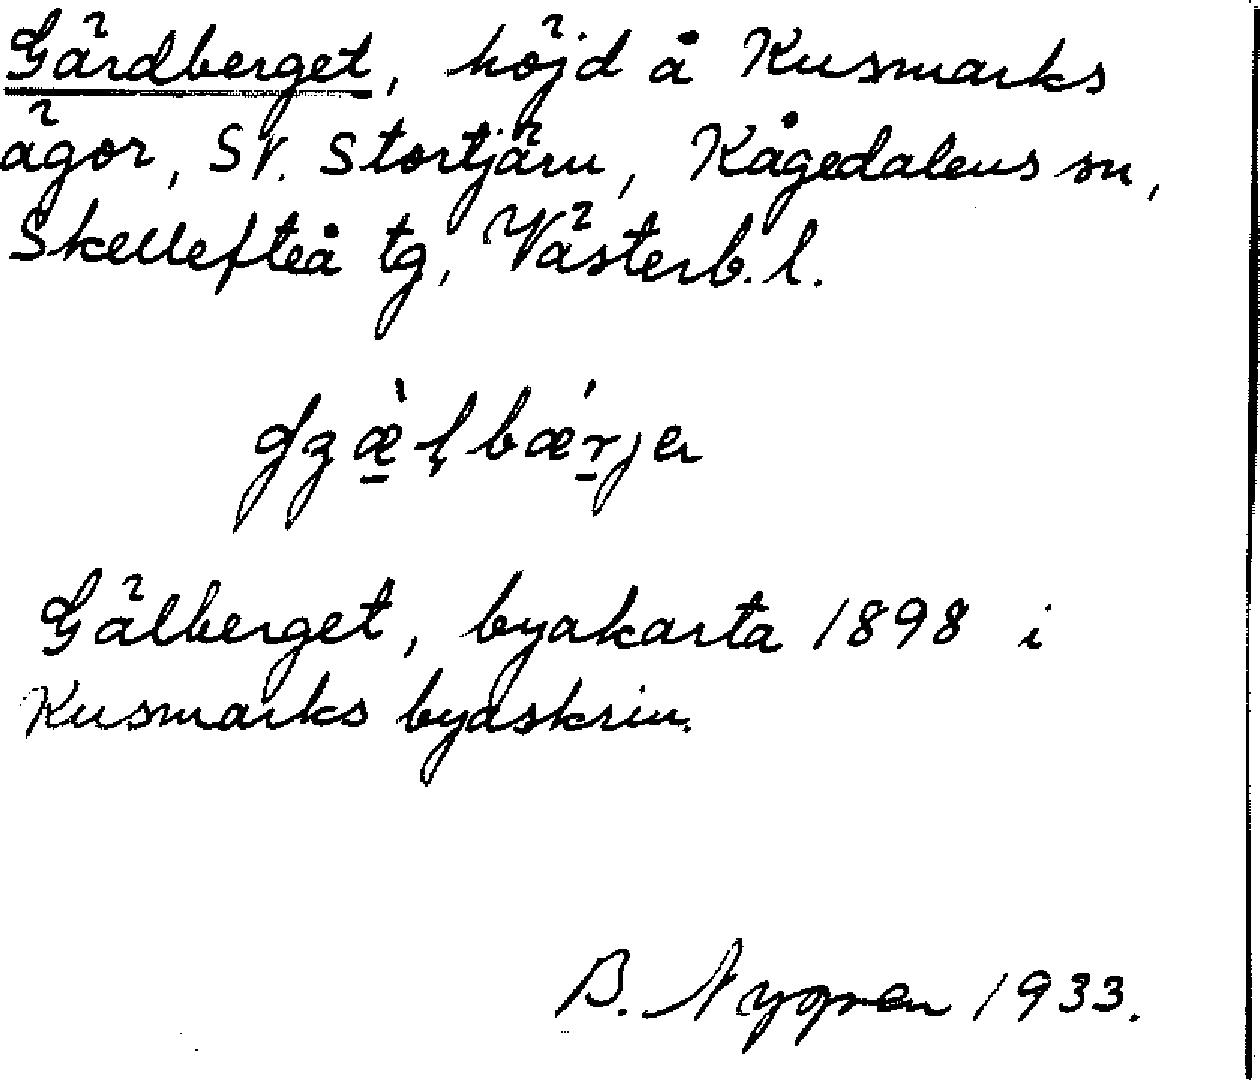 Gärdberget, höjd å Kusmarks
ägor, SV. Stortjärn, Kågedalens sn,
Skellefteå tg, Västerb. l.
Gälberget, byakarta 1898 i
Kusmarks byaskrin.
B. Nygren 1933.